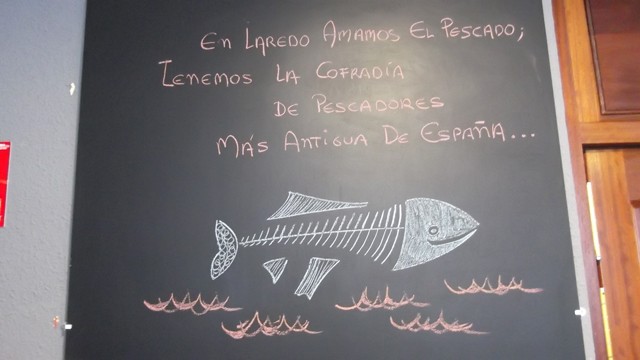 En Laredo Amamos El Pescado;
Tenemos La Cofradía
De Pescadores
Más Antigua De España...